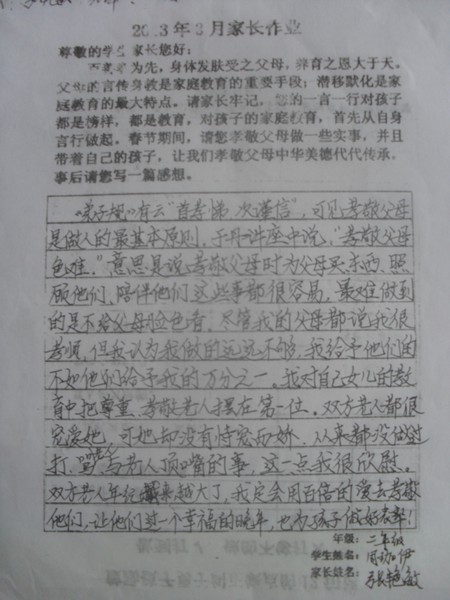 20 3年 月家长作业
尊敬的学生家长您好：
百 为先，身体发肤受之父母，养育之恩大于天。
父 的言传身教是家庭教育的重要手段；潜移默化是家
庭教育的最大特点。请家长牢记，您的一言一行对孩子
都是榜样，都是教育，对孩子的家庭教育，首先从自身
言行做起。春节期间，请您孝敬父母做一些实事，并且
带着自己的孩子，让我们孝敬父母中华美德代代传承。
事后请您写一篇感想。
《弟子规》有云“首孝悌 次谨信”，可见孝敬父母
是做人的最基本原则，于丹讲座中说，“孝敬父母
色难。”意思是说孝敬父母时为父母买东西、照
顾他们，陪伴他们这些事都很容易，最难做到
的是不给父母脸色看。尽管我的父母都说我很
孝顺，但我认为我做的远远不够，我给予他们的
不如他们给予我的万分之一。我对自己女儿的教
育中把尊重、孝敬老人摆在第一位。双方老人都很
宠爱她，可她却没有恃宠而娇，从来都没做过
打、骂 与老人顶嘴的事，这一点我很欣慰。
双方老人年纪越来越大了，我定会用百倍的爱去孝敬
他们，让他们过一个幸福的晚年，也为孩子做好表率！
年级：二年级
学生姓名：周 伊
家长姓名：张艳敏